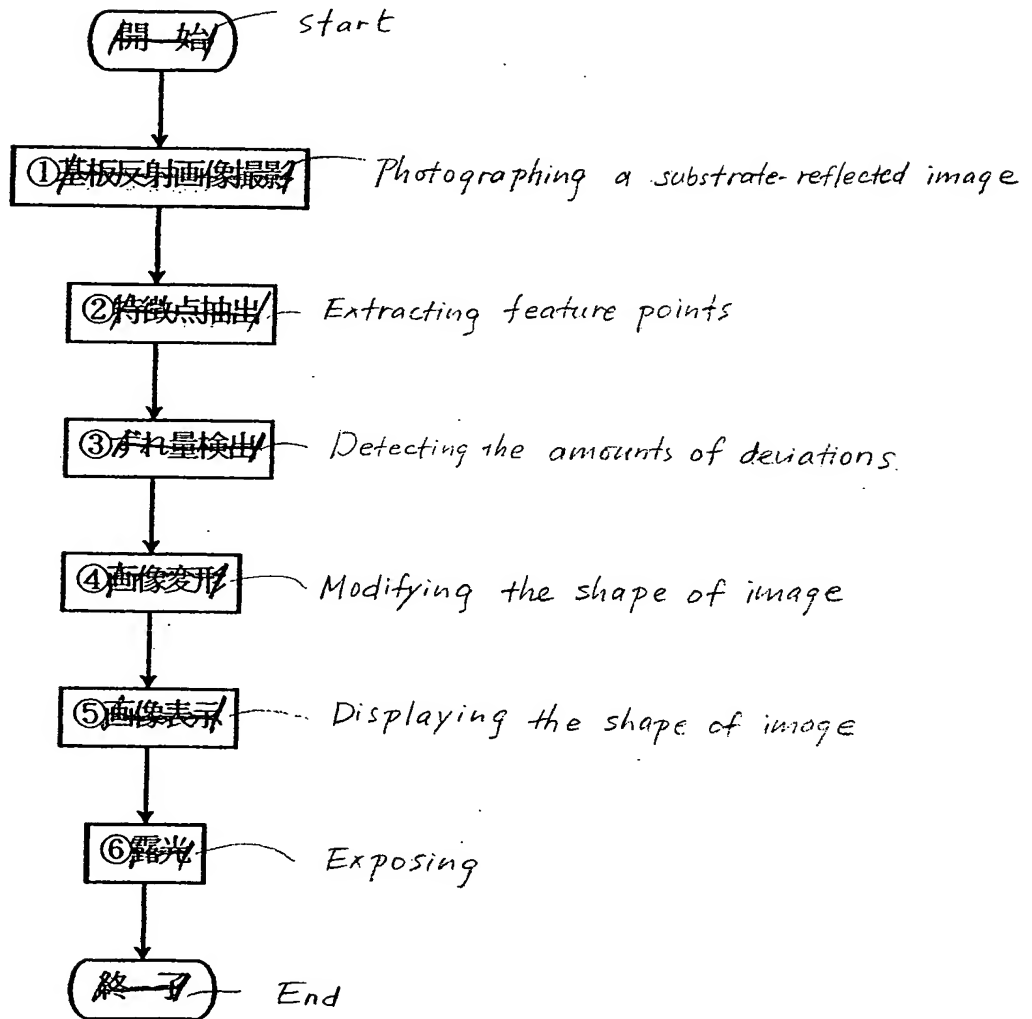 開始 start
①基板反射画像撮影 Photographing a substrate-reflected image
②特徴点抽出 Extracting feature points
③ずれ量検出 Detecting the amounts of deviations.
④画像変形 Modifying the shape of image
⑤画像表示 Displaying the shape of image
⑥露光 Exposing
終了 End